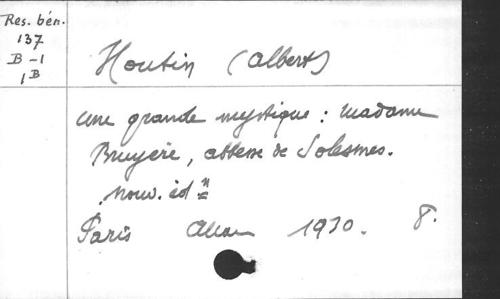 Res. bén.
137
B-1
1B
Houtin (Albert)
une grande mystique : Madame
Bruyère, abbesse de Solesmes.
nouv. édn
Paris Alcan 1930. 8.